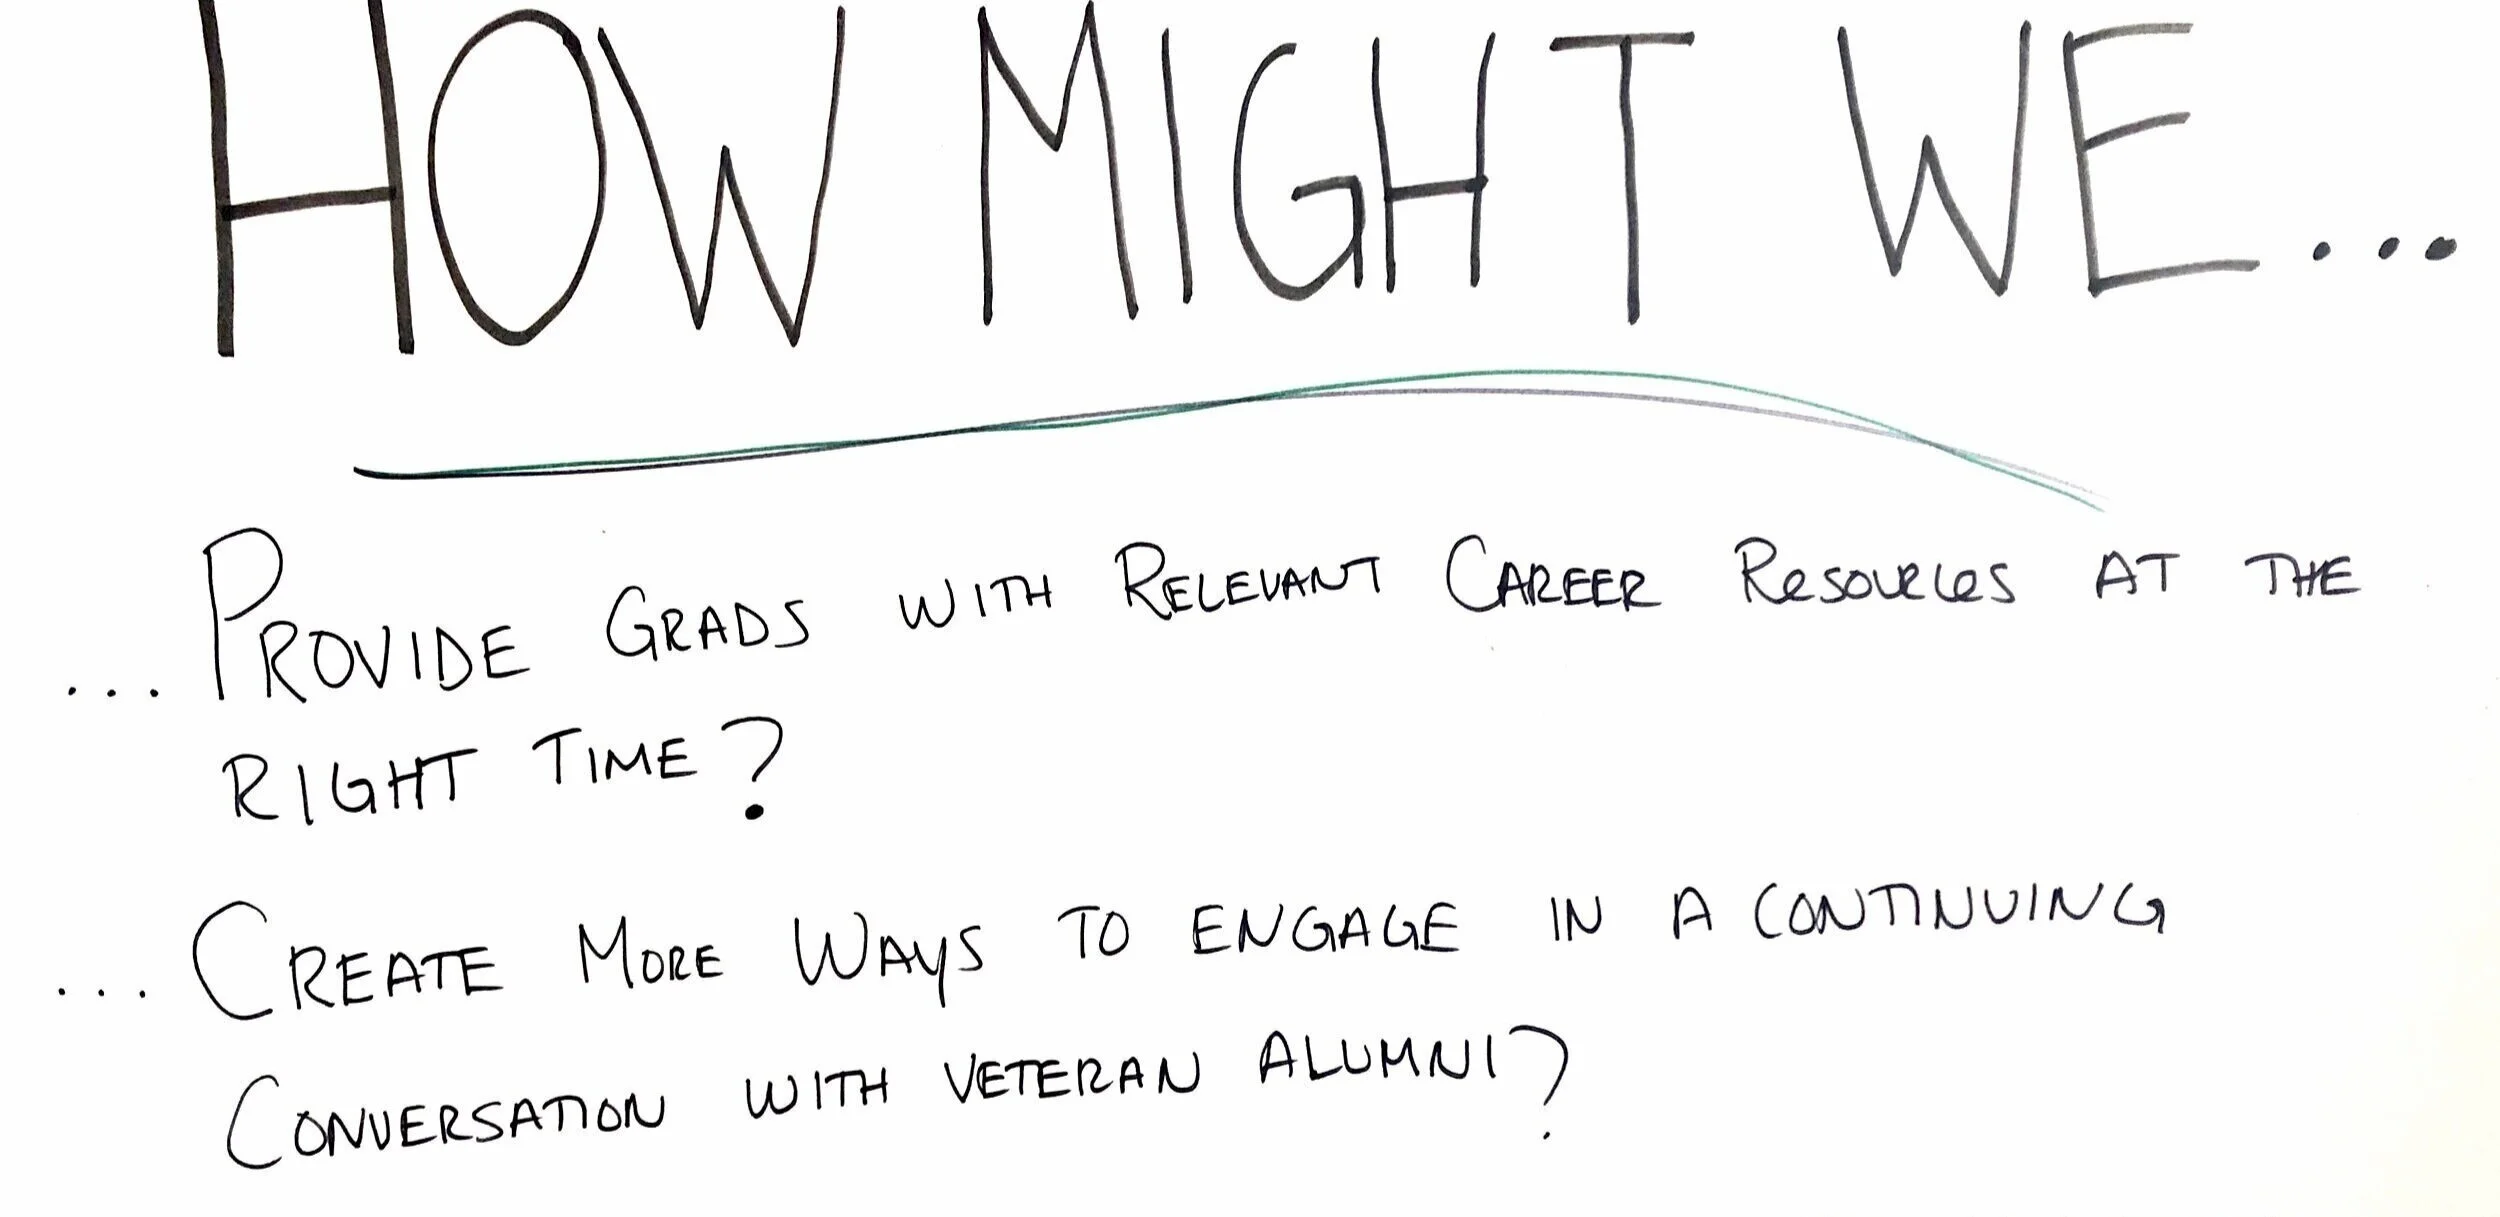 HOW MIGHT WE...
... PROVIDE GRADS WITH RELEVANT CAREER RESOURCES AT THE
RIGHT TIME?
... CREATE MORE WAYS TO ENGAGE IN A CONTINUING
CONVERSATION WITH VETERAN ALUMNI?